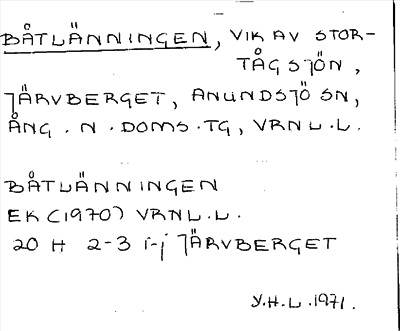 BÅTLÄNNINGEN, VIK AV STOR-
TÅGSJÖN,
JÄRVBERGET, ANUNDSJÖ SN,
ÅNG. N. DOMS. TG, VRNL.L.
BÅTLÄNNINGEN
EK (1970) VRNL.L.
20 H 2-3 i-j JÄRVBERGET
Y.H.L. 1971.